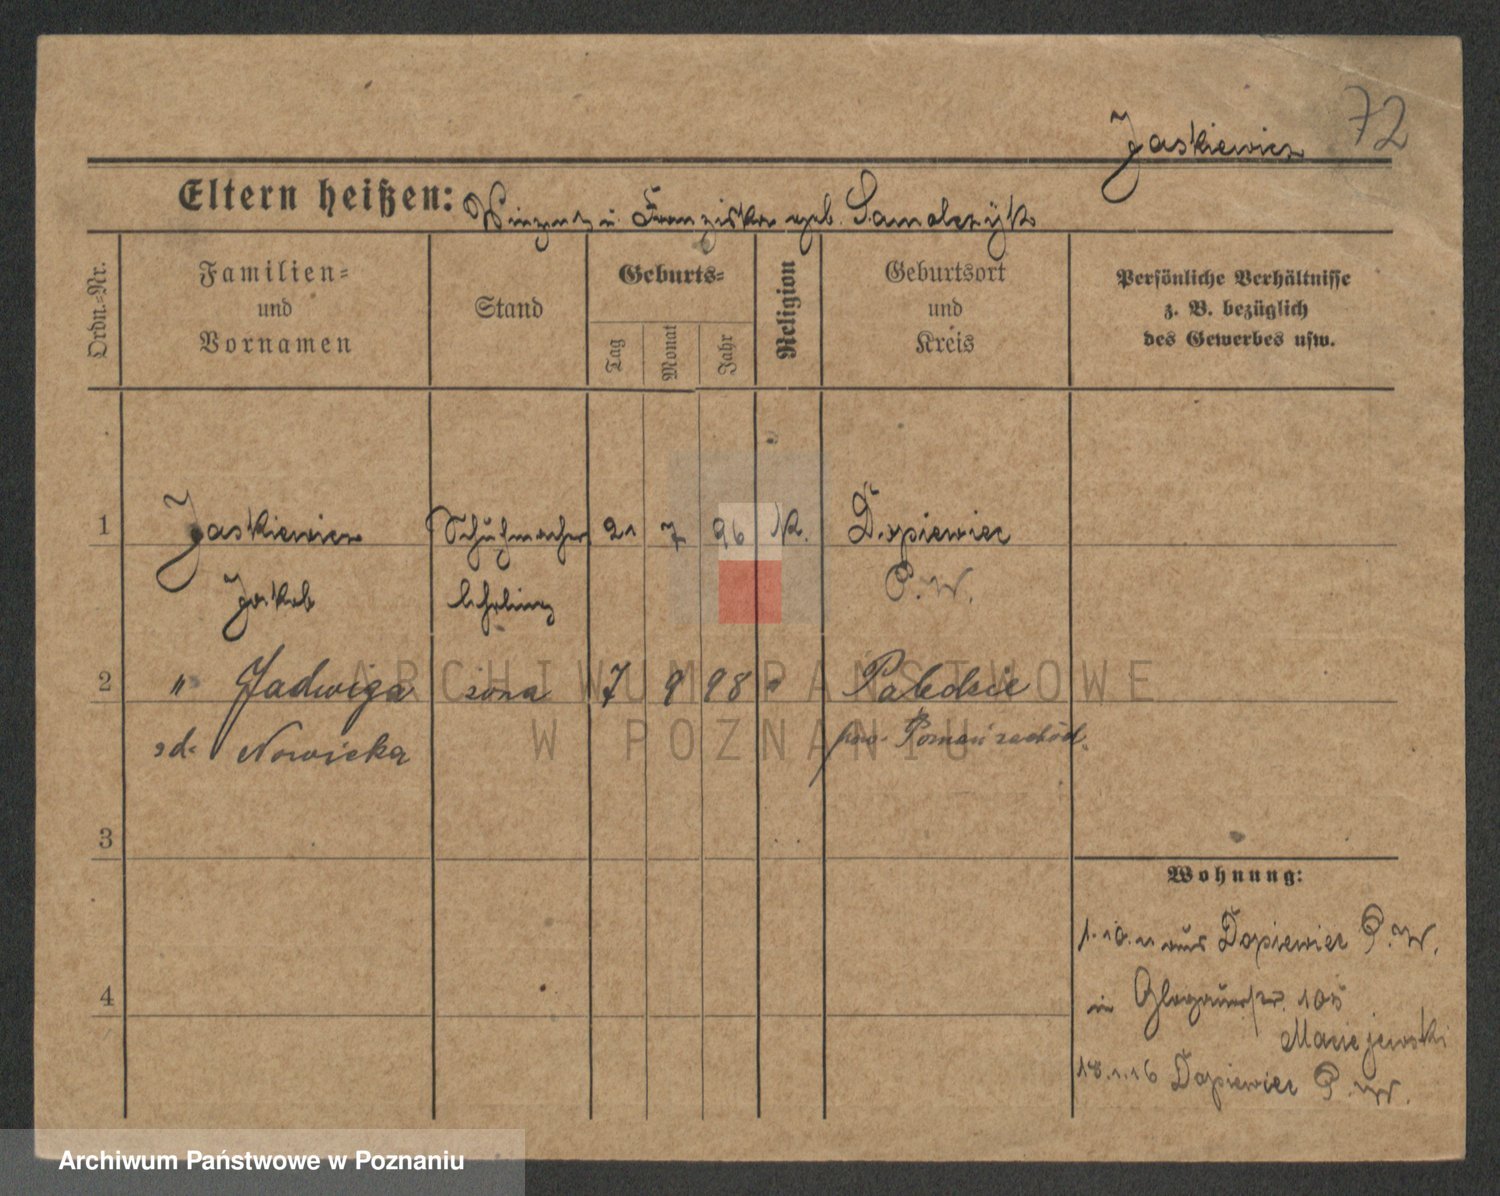 72
Jaskiewicz
Eltern heißen: Winzent u. Franziska geb. Samolczyk
Ordn.=Nr.
Familien=
und
Vornamen
Stand
Geburts=
Tag
Monat
Jahr
Religion
Geburtsort
und
Kreis
Persönliche Verhältnisse
z. B. bezüglich
des Gewerbes usw.
1 Jaskiewicz Schuhmacher 21 7 96 K. Dopiewiec
Jakob lehrling P. W.
2 " Jadwiga żona 7 9 98 " Palędzie
zd. Nowicka pow. Poznań zachód.
3
4
Wohnung:
1.10.11 aus Dopiewiec P. W.
in Glogauerstr. 105
Maciejewski
18.1.16 Dopiewiec P. W.
ARCHIWUM PAŃSTWOWE
W POZNANIU
Archiwum Państwowe w Poznaniu